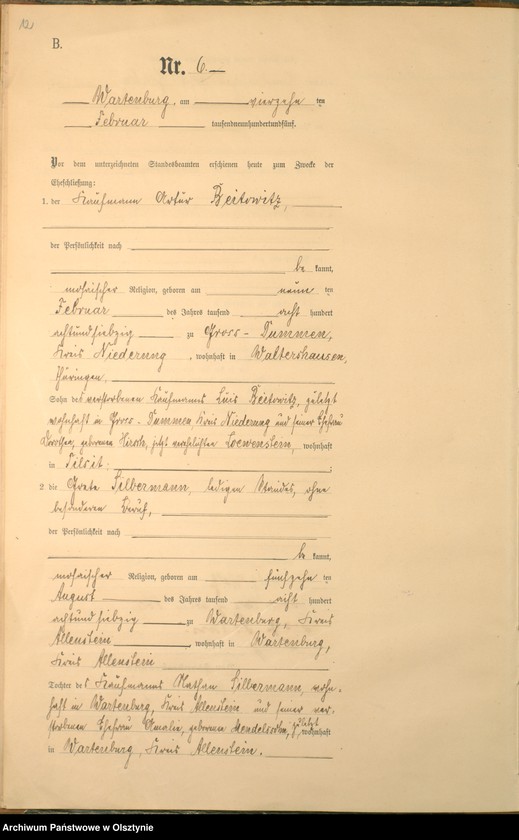 12
B.
Nr. 6.
Wartenburg, am vierzehn ten
Februar tausendneunhundertundfünf.
Vor dem unterzeichneten Standesbeamten erschienen heute zum Zwecke der
Eheschließung:
1. der Kaufmann Artur Beitowitz,
der Persönlichkeit nach
be kannt,
mosaischer Religion, geboren am neun ten
Februar des Jahres tausend acht hundert
achtundsiebzig zu Gross-Dummen,
Kreis Niederung, wohnhaft in Waltershausen,
Thüringen,
Sohn des verstorbenen Kaufmanns Luis Beitowitz, zuletzt
wohnhaft in Gross-Dummen, Kreis Niederung und seiner Ehefrau
Dorothea, geborenen Hirsch, jetzt verehelichten Loewenstein, wohnhaft
in Tilsit.
2. die Grete Silbermann, ledigen Standes, ohne
besonderen Beruf,
der Persönlichkeit nach
be kannt,
mosaischer Religion, geboren am fünfzehn ten
August des Jahres tausend acht hundert
achtundsiebzig zu Wartenburg, Kreis
Allenstein, wohnhaft in Wartenburg,
Kreis Allenstein
Tochter des Kaufmanns Nathan Silbermann, wohn-
haft in Wartenburg, Kreis Allenstein und seiner ver-
storbenen Ehefrau Amalie, geborenen Mendelsohn, zuletzt wohnhaft
in Wartenburg, Kreis Allenstein.
Archiwum Państwowe w Olsztynie